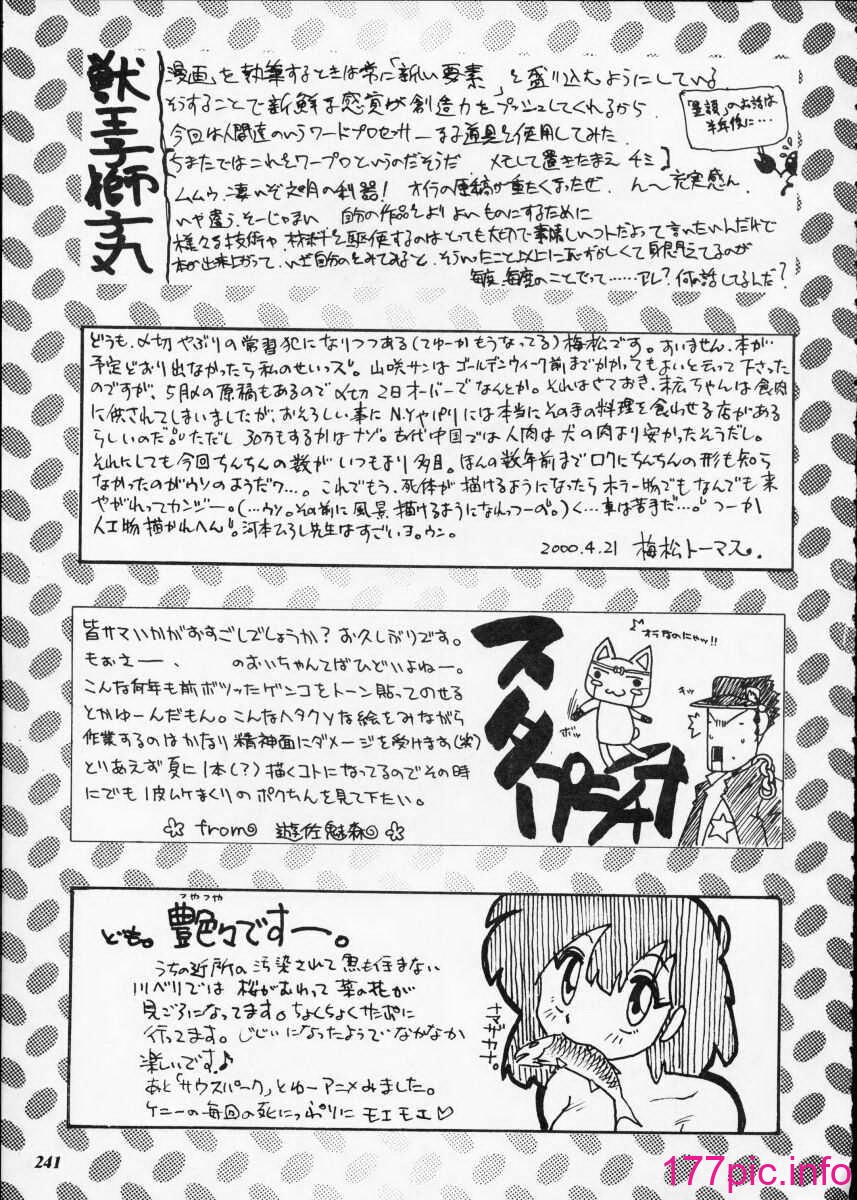 獣王子獅子丸
漫画を執筆するときは常に「新しい要素」を盛り込むようにしている
そうすることで新鮮な感覚が創造力をプッシュしてくれるから。
今回は人間達のいうワードプロセッサーなる道具を使用してみた。
ちまたではこれをワープロというのだそうだ メモして置きたまえ チミ
ムムウ、凄いぞ文明の利器! オイラの原稿が重たくなったぜ。 ん〜充実感ん。
いや違う、そーじゃない 自分の作品をよりよいものにするために
様々な技術や材料を駆使するのはとっても大切で素晴しいコトだよって言いたいんだけど
本が出来上がって、いざ自分のをみてみると、そういったこと以上に恥ずかしくて身悶えてるのが
毎度、毎度のことでって……アレ?何の話してるんだ?
のお話は
半年後に…
どうも、〆切やぶりの常習犯になりつつある(てゆーかもうなってる)梅松です。すいません、本が…
予定どおり出なかったら私のせいッス。山咲サンはゴールデンウィーク前までかかってもよいと云って下さった
のですが、5月〆の原稿もあるので〆切2日オーバーでなんとか。それはさておき、ちゃんは食肉
に供されてしまいましたが、おそろしい事にN.Yやパリには本当にその手の料理を食わせる店がある
らしいのだ。ただし30万もするかはナゾ。古代中国では人肉は犬の肉より安かったそうだし。
それにしても今回ちんちんの数がいつもより多目。ほんの数年前までロクにちんちんの形も知ら
なかったのがウソのようだワ…。これでもう、死体が描けるようになったらホラー物でもなんでも来
やがれってカンジー。(…ウソ。その前に風景描けるようになれっつーの。)く…車は苦手だ…。つーか
人工物描かれへん。河本ひろし先生はすごいヨ。ウン。
2000.4.21 梅松トーマス。
皆サマいかがおすごしでしょうか? お久しぶりです。
もぉえー、 のおいちゃんてばひどいよねー。
こんな何年も前ボツったゲンコをトーン貼ってのせる
とかゆーんだもん。こんなヘタクソな絵をみながら
作業するのはかなり精神面にダメージを受けます(笑)
とりあえず夏に1本(?)描くコトになってるのでその時
にでも1皮ムケまくりのボクちんを見て下たい。
☆ from 遊佐魅森 ☆
オラなのにャッ!!
スタープラチナ
ども。艶々ですー。
つやつや
うちの近所の汚染されて魚も住まない
川べりでは 桜がおわって菜の花が
見ごろになってます。ちょくちょくサボに
行ってます。じじぃになったようでなかなか
楽しいです♪
あと「サウスパーク」とゆーアニメみました。
ケニーの毎回の死にっぷりにモエモエ♡
ナマザカナ。
241
177pic.info